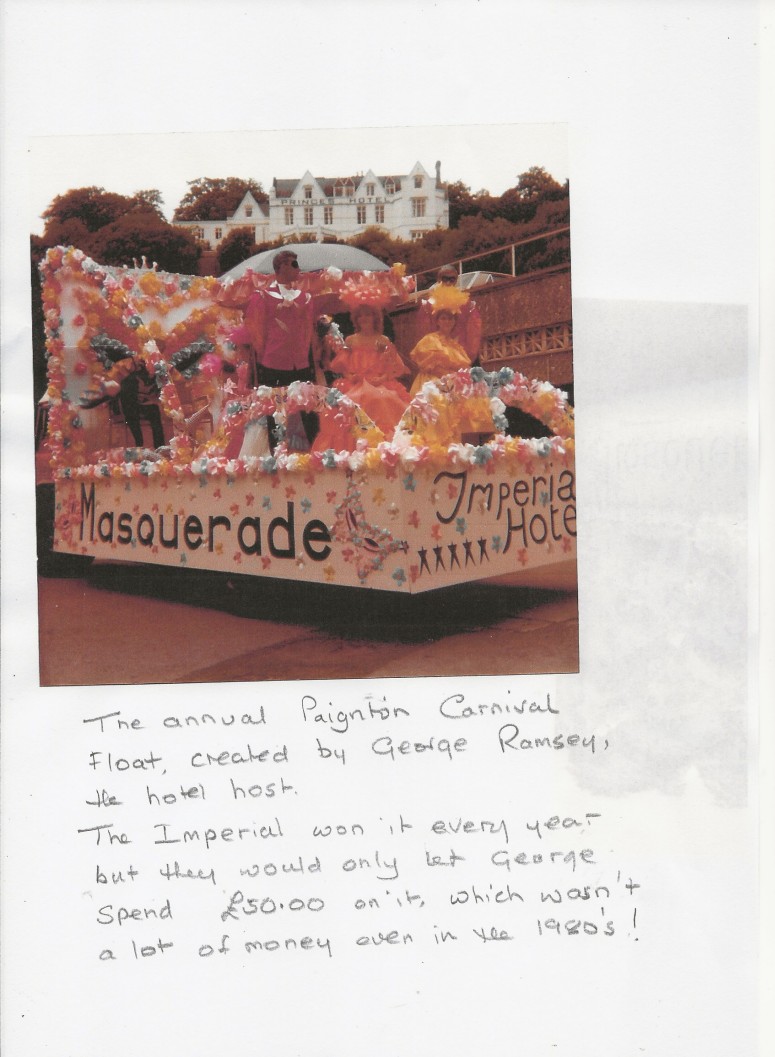 PRINCES HOTEL
Masquerade
Imperia
Hote
The annual Paignton Carnival
Float, created by George Ramsey,
the hotel host.
The Imperial won it every year
but they would only let George
Spend £50.00 on it, which wasn't
a lot of money even in the 1980's!